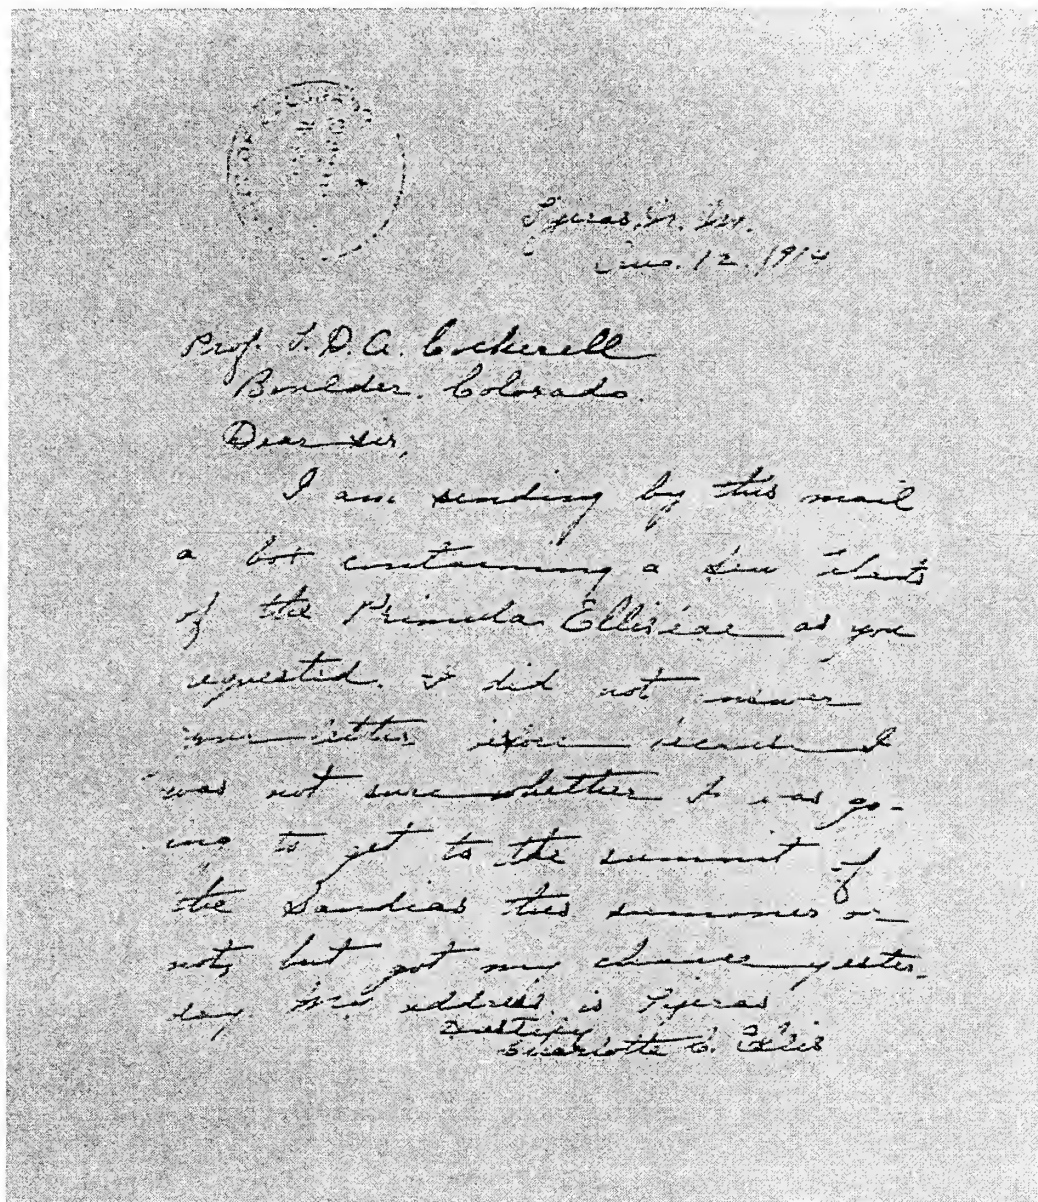 Tijeras, N. M.
Aug. 12. 1914
Prof. T. D. A. Cockerell
Boulder. Colorado.
Dear Sir,
I am sending by this mail
a box containing a few plants
of the Primula Ellisiae as you
requested. I did not answer
your letter before because I
was not sure whether I was go-
ing to get to the summit of
the Sandias this summer or
not, but got my chance yester-
day. My address is Tijeras
Charlotte C. Ellis